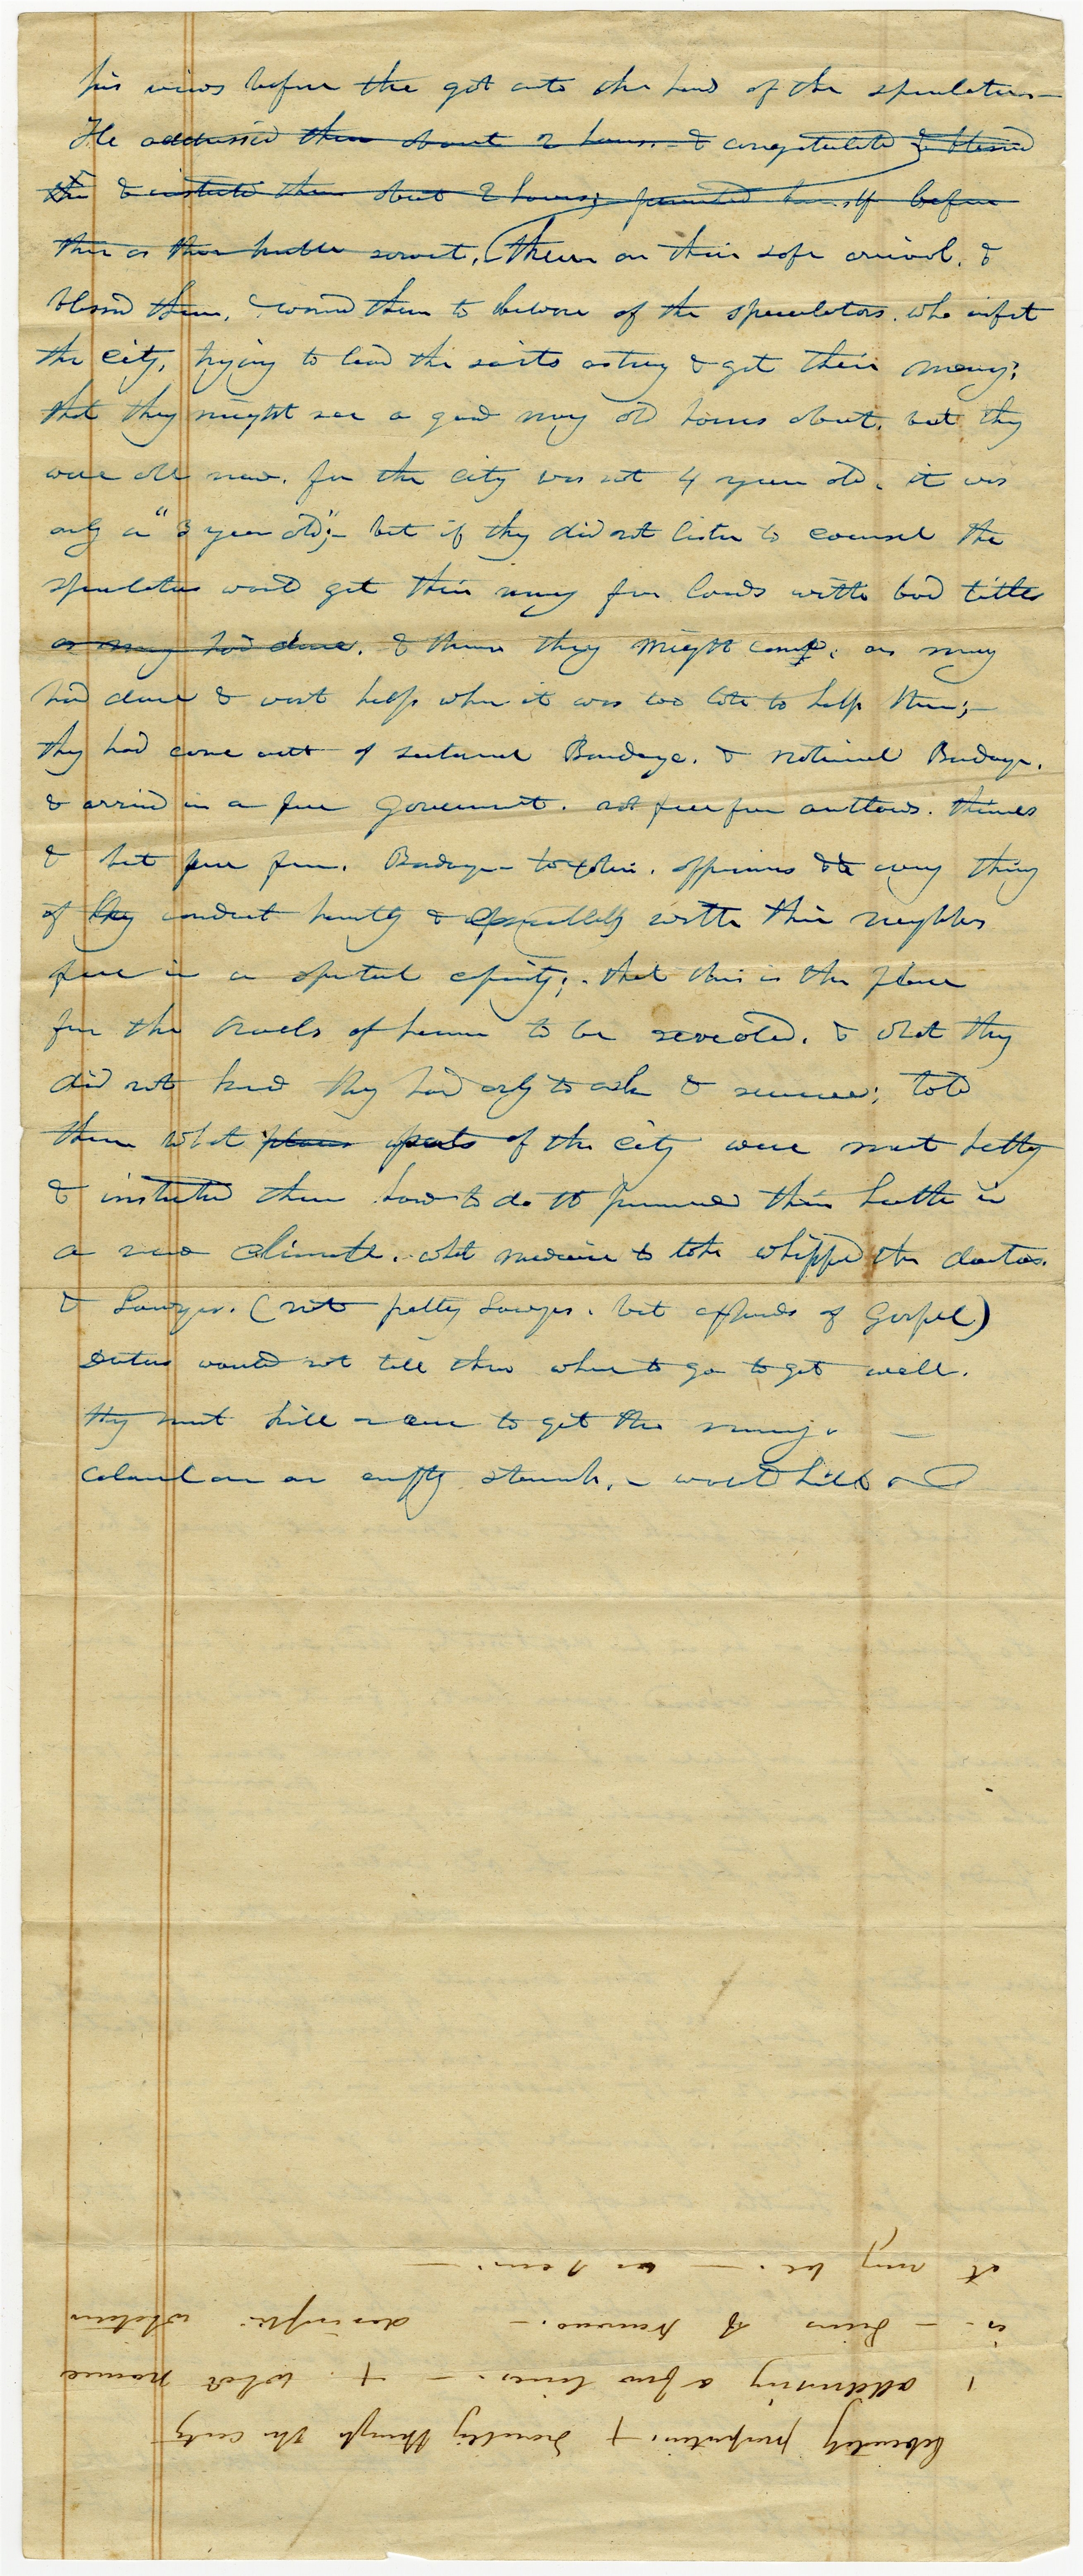 his views before the got into the hand of the speculators—
He addressed them about 2 hours. & congratulated & blessed
them & instructed them about 2 hours; presented himself before
them as their humble servant, them on their safe arrival. &
blessed them, & warned them to beware of the speculators. who infest
the city, trying to lead the saints astray & get their money;
that they might see a good many old houses about, but they
were all new. for the city was not 4 years old. it was
only a "3 year old;"— but if they did not listen to counsel the
speculators would get their money for lands with bad titles
as many had done. & then they might come, as many
had done & want help when it was too late to help them;—
they had come out of sectarian Bondage. & national Bondage.
& arrived in a free Government. not free from outlaws. thieves
& but free from. Bondage to oppressors & every thing
of they conduct honestly & peaceably with their neighbors
free in a spiritual capacity; that this is the place
for the oracles of heaven to be revealed. & what they
did not know they had only to ask & receive; told
them what places parts of the city were most healthy
& instructed them how to do to preserve their health in
a new climate. what medicine to take whipped the doctors.
& Lawyers. (not petty Lawyers. but expounders of Gospel)
Doctors would not tell them where to go to get well.
they must kill or cure to get the money.
Calomel on an empty stomach,— would kill
it may be. — as I am. —
is — heirs of — described whatever
1 addressing a few lines. — + . what name
liberality + through the city